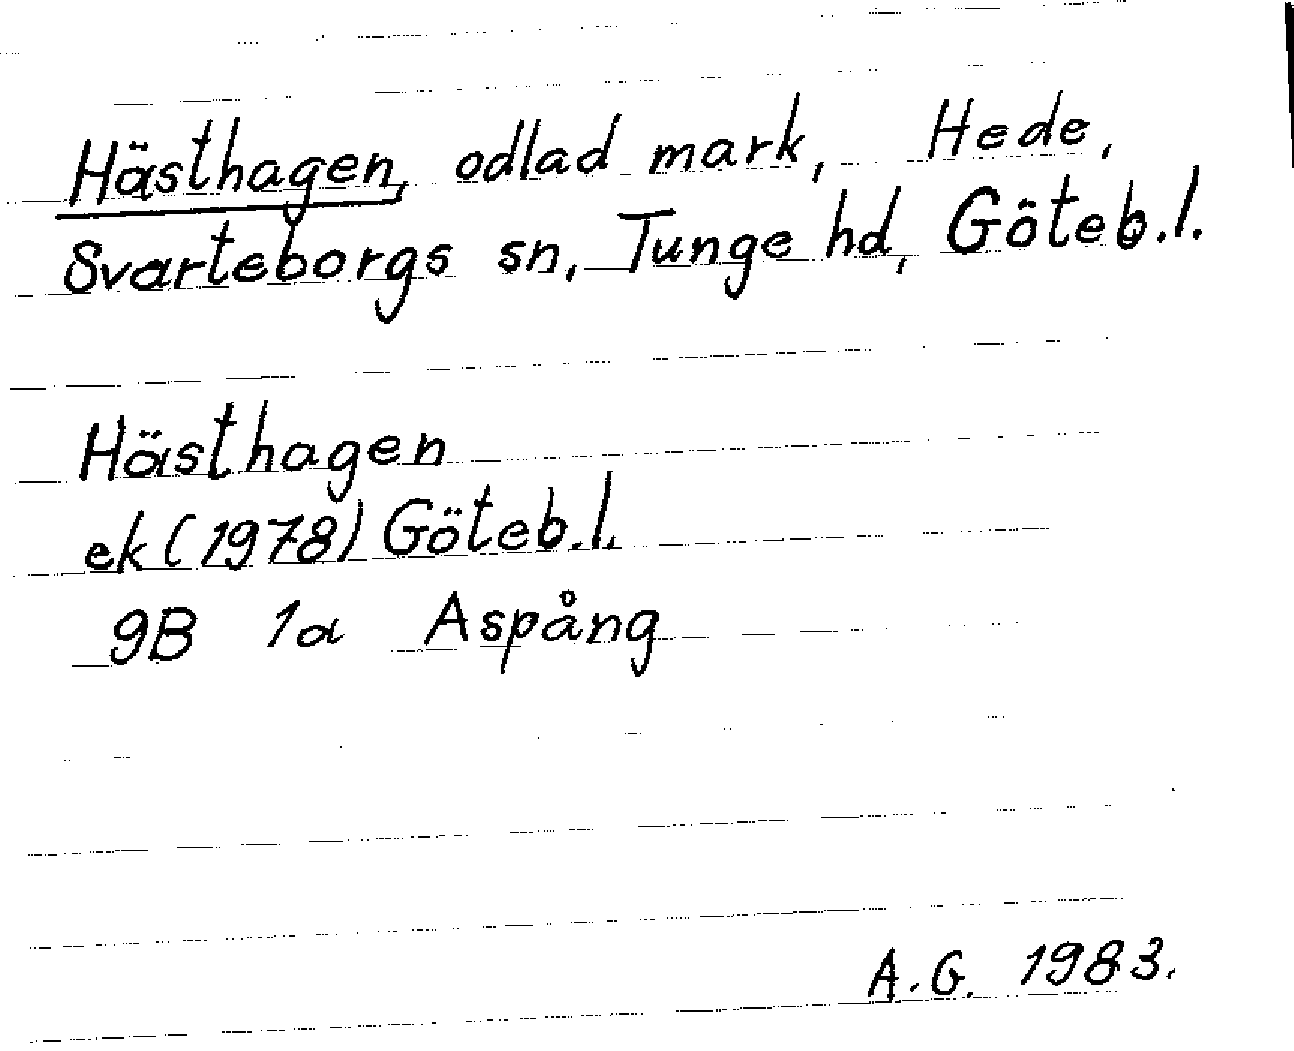 Hästhagen, odlad mark, Hede,
Svarteborgs sn, Tunge hd, Göteb.l.
Hästhagen
ek (1978) Göteb.l.
9B 1a Aspång
A.G. 1983.